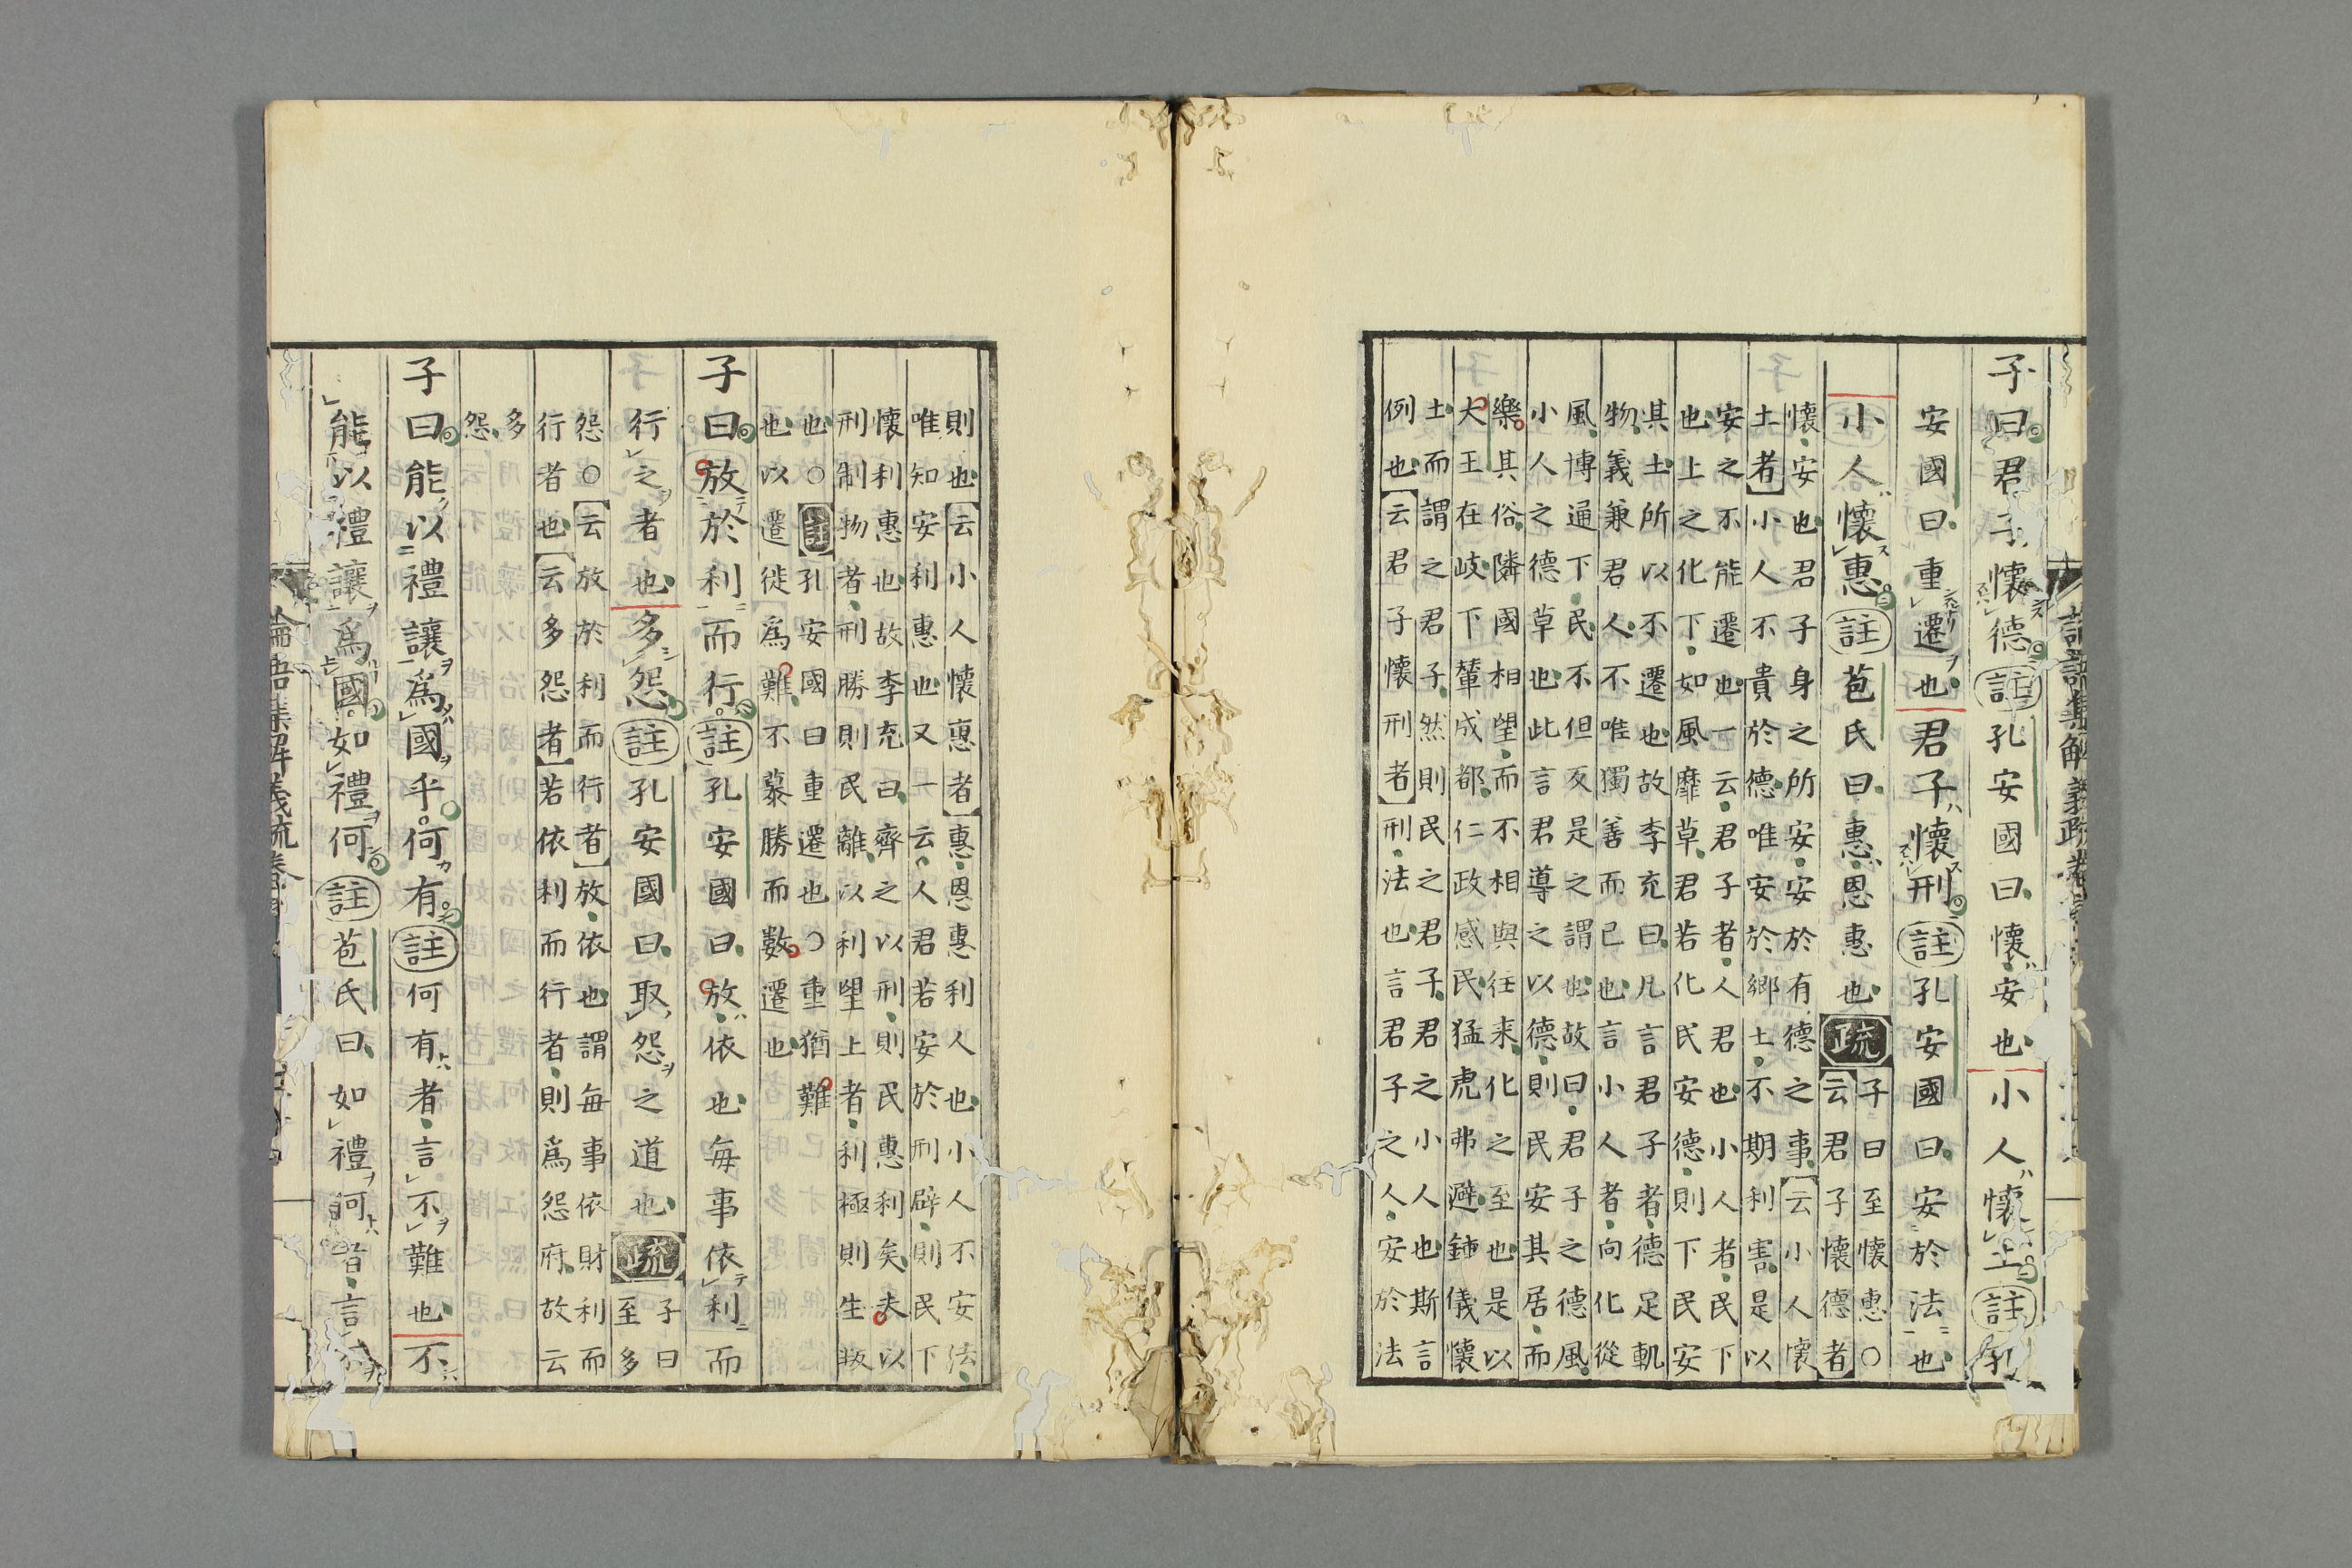 子曰君子懷德註孔安國曰懷安也小人懷土註孔
安國曰重遷也君子懷刑註孔安國曰安於法也
小人懷惠註苞氏曰惠恩惠也疏
子曰至懷惠○
云君子懷德者
懷安也君子身之所安安於有德之事云小人懷
土者小人不貴於德唯安於鄉土不期利害是以
安之不能遷也一云君子者人君也小人者民下
也上之化下如風靡草君若化民安德則下民安
其土所以不遷也故李充曰凡言君子者德足軌
物義兼君人不唯獨善而已也言小人者向化從
風博通下民不但反是之謂也故曰君子之德風
小人之德草也此言君導之以德則民安其居而
樂其俗隣國相望而不相與往来化之至也是以
大王在岐下輦成都仁政感民猛虎弗避鍾儀懷
土而謂之君子然則民之君子君之小人也斯言
例也云君子懷刑者刑法也言君子之人安於法
則也云小人懷惠者惠恩惠利人也小人不安法
唯知安利惠也又一云人君若安於刑辟則民下
懷利惠也故李充曰齊之以刑則民惠利矣夫以
刑制物者刑勝則民離以利望上者利極則生叛
也○註孔安國曰重遷也○重猶難
也以遷徙為難不慕勝而數遷也
子曰放於利而行註孔安國曰放依也每事依利而
行之者也多怨註孔安國曰取怨之道也疏
子曰
至多
怨○云放於利而行者放依也謂每事依財利而
行者也云多怨者若依利而行者則爲怨府故云
多
怨
子曰能以禮讓爲國乎何有註何有者言不難也不
能以禮讓爲國如禮何註苞氏曰如禮何者言